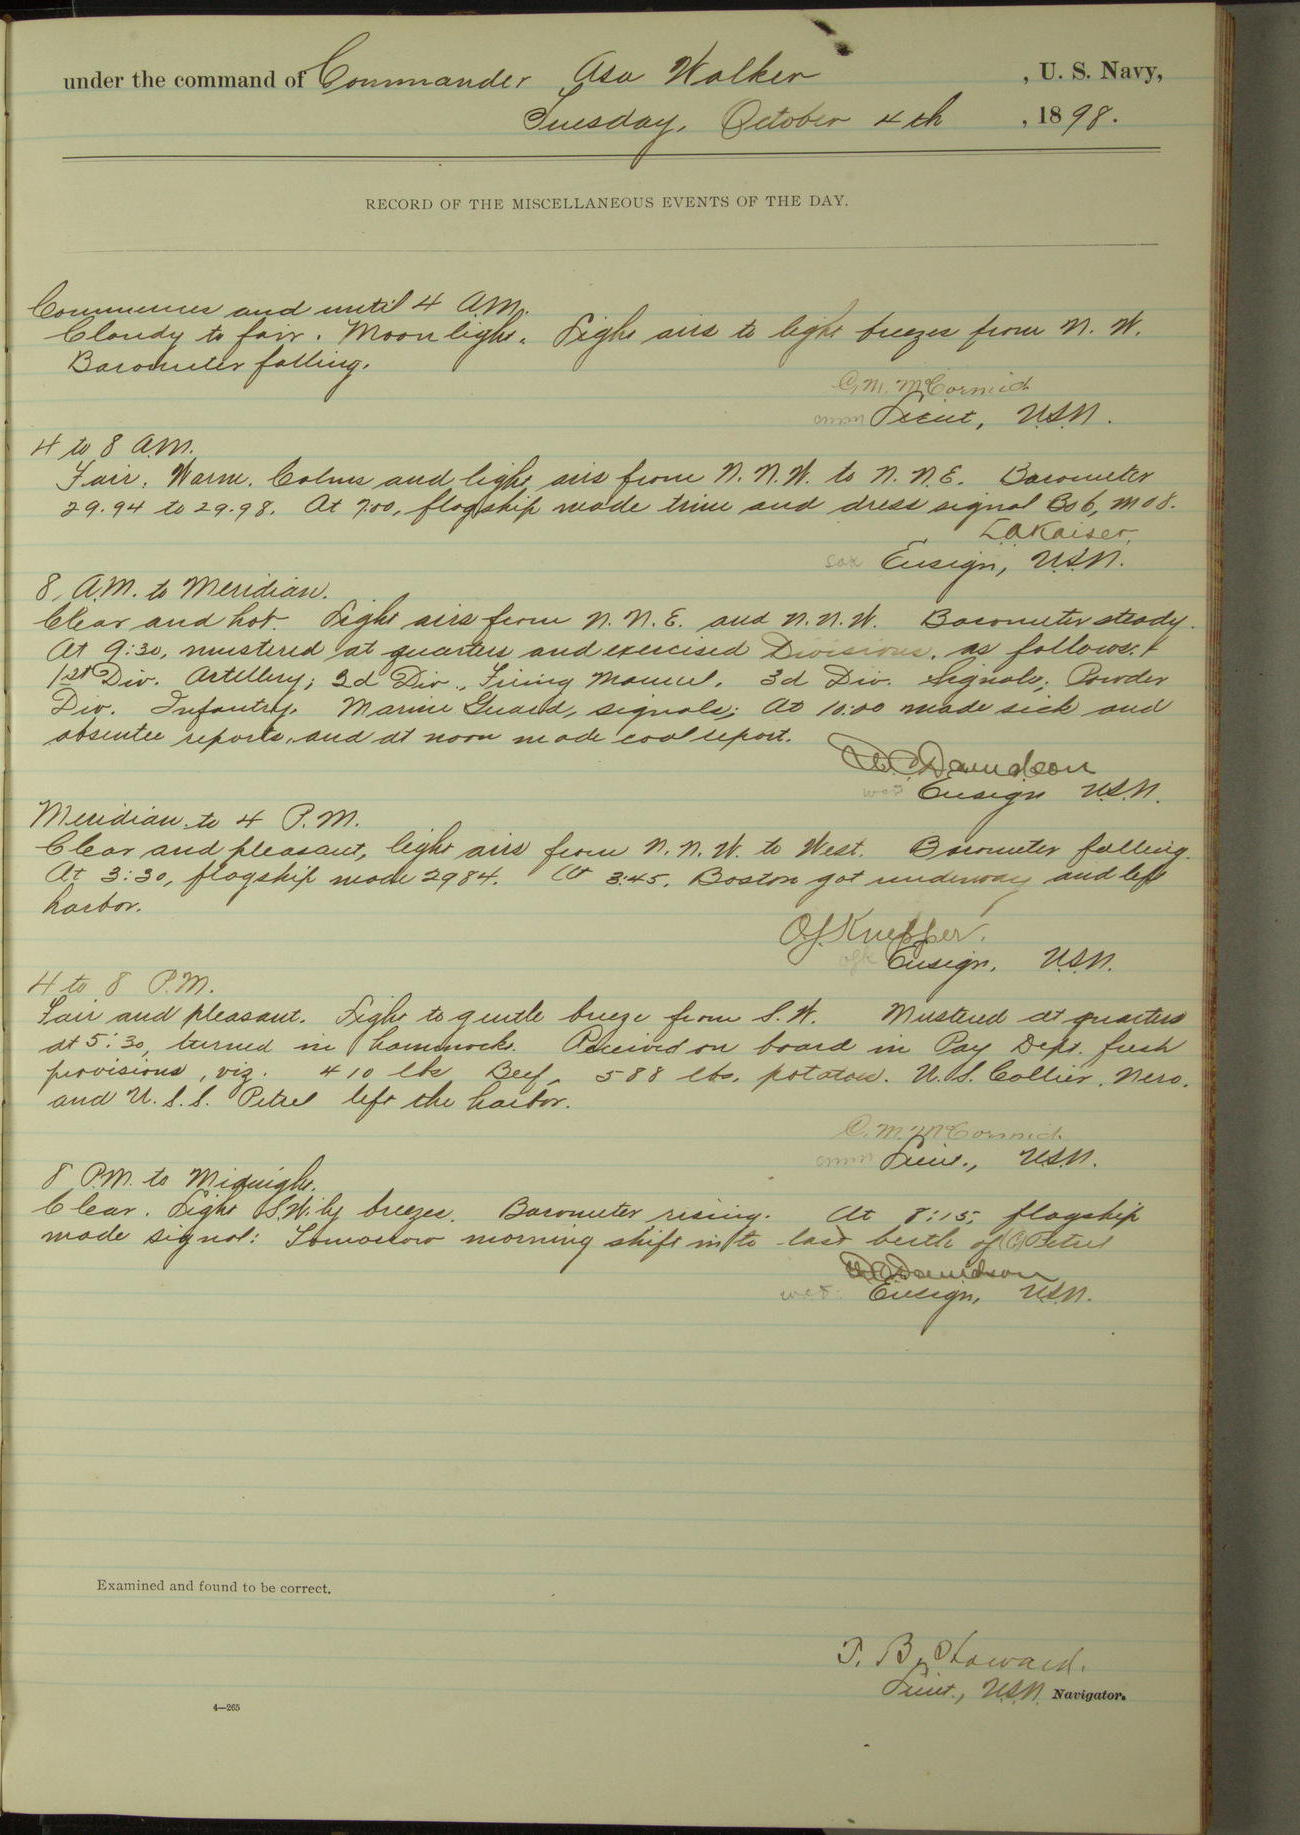 under the command of Commander Asa Walker , U. S. Navy,
Tuesday, October 4th , 1898.
RECORD OF THE MISCELLANEOUS EVENTS OF THE DAY.
Commences and until 4 A.M.
Cloudy to fair. Moonlight. Light airs to light breezes from N. W.
Barometer falling.
C. M. McCormick
Lieut, U.S.N.
4 to 8 A.M.
Fair. Warm. Calms and light airs from N. N. W. to N. N. E. Barometer
29.94 to 29.98. At 7:00, flagship made trim and dress signal
L A Kaiser,
Ensign, U.S.N.
8 A.M. to Meridian.
Clear and hot. Light airs from N. N. E. and N. N. W. Barometer steady.
At 9:30, mustered at quarters and exercised Divisions, as follows:
1st Div. Artillery; 2d Div., Firing Manuel. 3d Div. Signals; Powder
Div. Infantry. Marine Guard, signals; At 10:00 made sick and
absentee reports, and at noon made coal report.
W C Davidson
wcd Ensign U.S.N.
Meridian to 4 P.M.
Clear and pleasant, light airs from N. N. W. to West. Barometer falling.
At 3:30, flagship made 2984. At 3:45, Boston got underway and left
harbor.
O J Knepper.
ofk Ensign, U.S.N.
4 to 8 P.M.
Fair and pleasant. Light to gentle breeze from S. W. Mustered at quarters
at 5:30, turned in hammocks. Received on board in Pay Dept. fresh
provisions, viz. 410 lbs Beef, 588 lbs. potatoes. U. S. Collier, Nero.
and U. S. S. Petrel left the harbor.
C. M. McCormick
Lieut., U.S.N.
8 P.M. to Midnight.
Clear. Light S.W.'ly breezes. Barometer rising. At 8:15, flagship
made signal: Tomorrow morning shift into last berth of Petrel
W C Davidson
wcd. Ensign, U.S.N.
Examined and found to be correct.
T. B. Howard.
Lieut., U.S.N. Navigator.
4—265